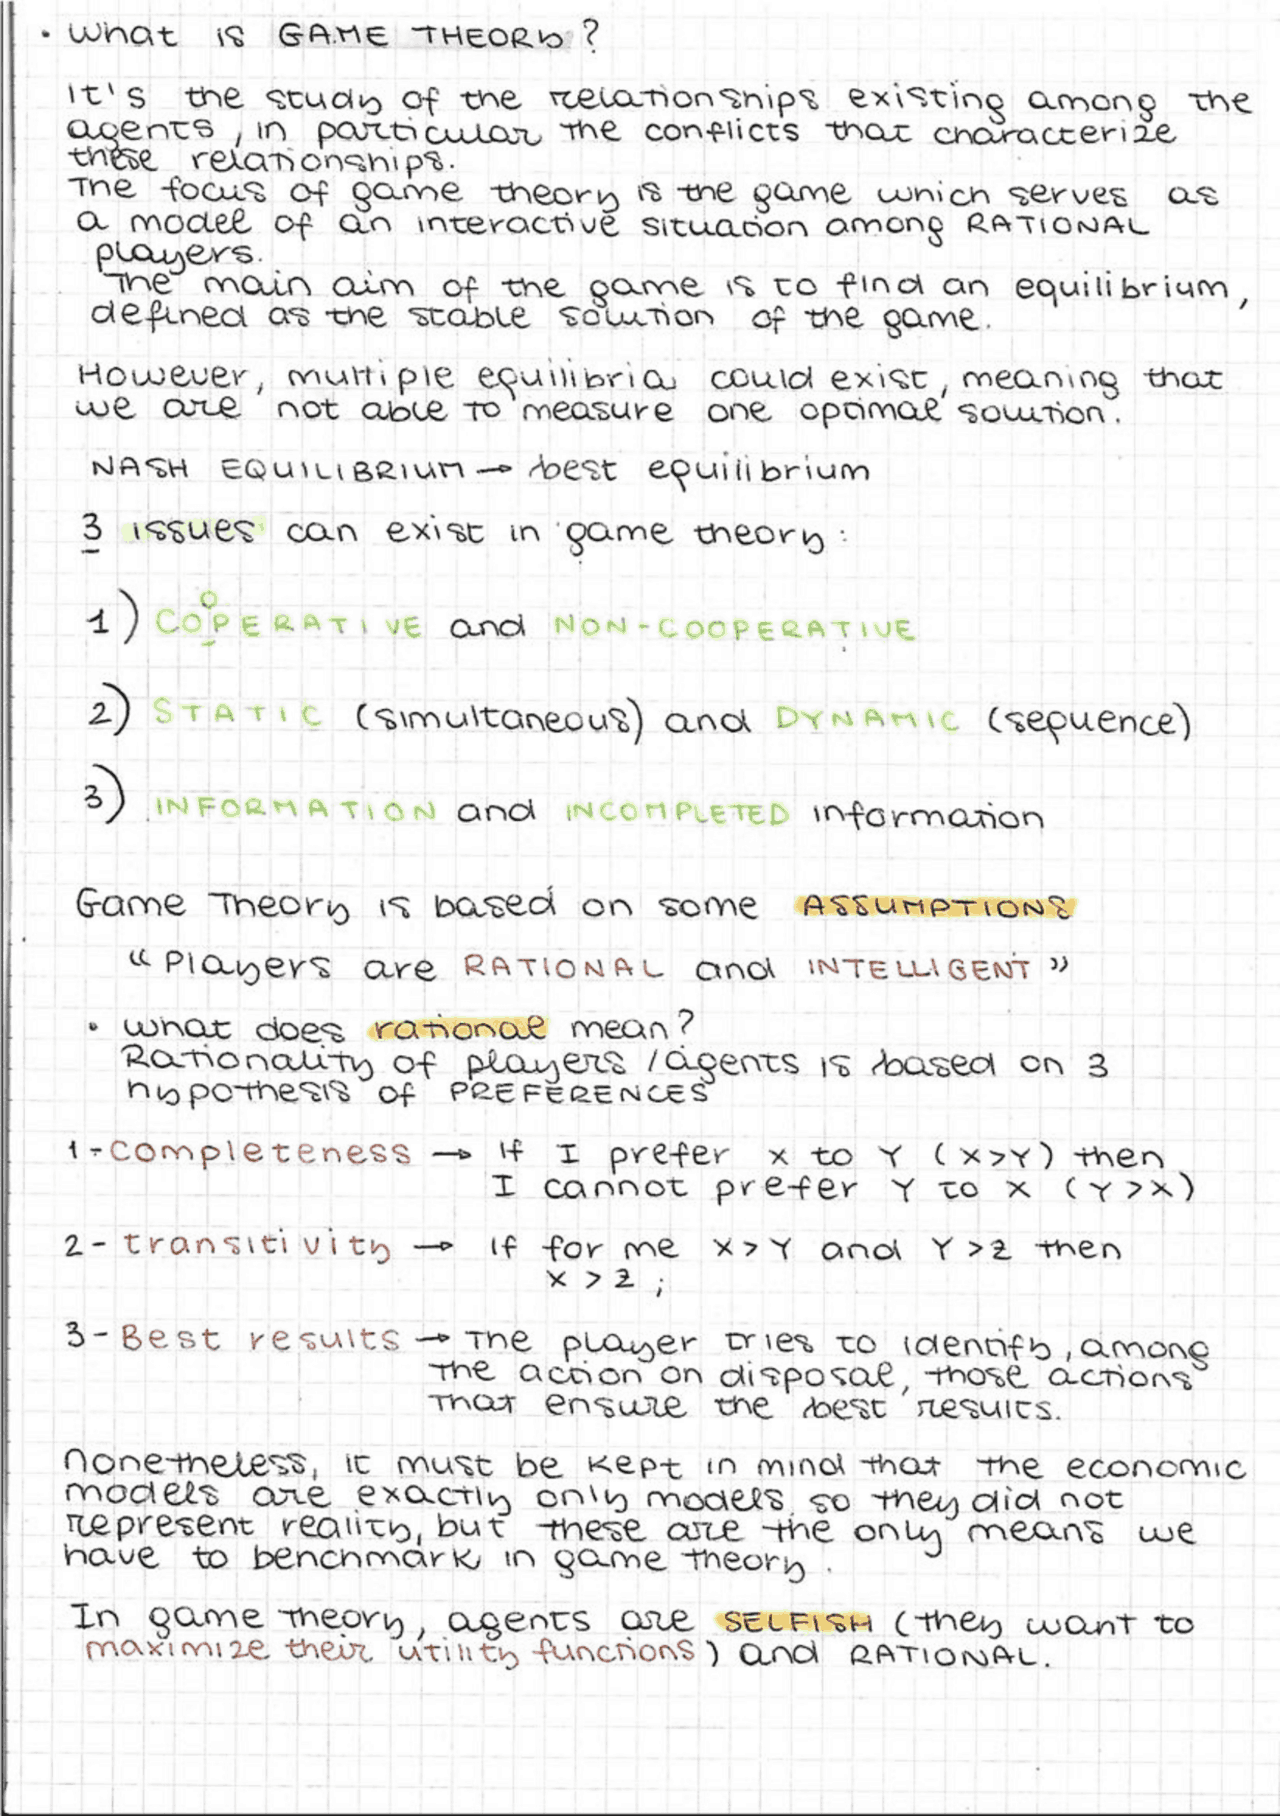 • What is GAME THEORY?
It's the study of the relationships existing among the
agents, in particular the conflicts that characterize
these relationships.
The focus of game theory is the game which serves as
a model of an interactive situation among RATIONAL
players.
The main aim of the game is to find an equilibrium,
defined as the stable solution of the game.
However, multiple equilibria could exist, meaning that
we are not able to measure one optimal solution.
NASH EQUILIBRIUM → best equilibrium
3 issues can exist in game theory:
1) COOPERATIVE and NON-COOPERATIVE
2) STATIC (simultaneous) and DYNAMIC (sequence)
3) INFORMATION and INCOMPLETED information
Game Theory is based on some ASSUMPTIONS
“Players are RATIONAL and INTELLIGENT”
• What does rational mean?
Rationality of players / agents is based on 3
hypothesis of PREFERENCES
1- Completeness → If I prefer X to Y (X>Y) then
I cannot prefer Y to X (Y>X)
2- transitivity → If for me X>Y and Y>Z then
X > Z;
3- Best results → The player tries to identify, among
the action on disposal, those actions
that ensure the best results.
Nonetheless, it must be kept in mind that the economic
models are exactly only models, so they did not
represent reality, but these are the only means we
have to benchmark in game theory.
In game theory, agents are SELFISH (they want to
maximize their utility functions) and RATIONAL.